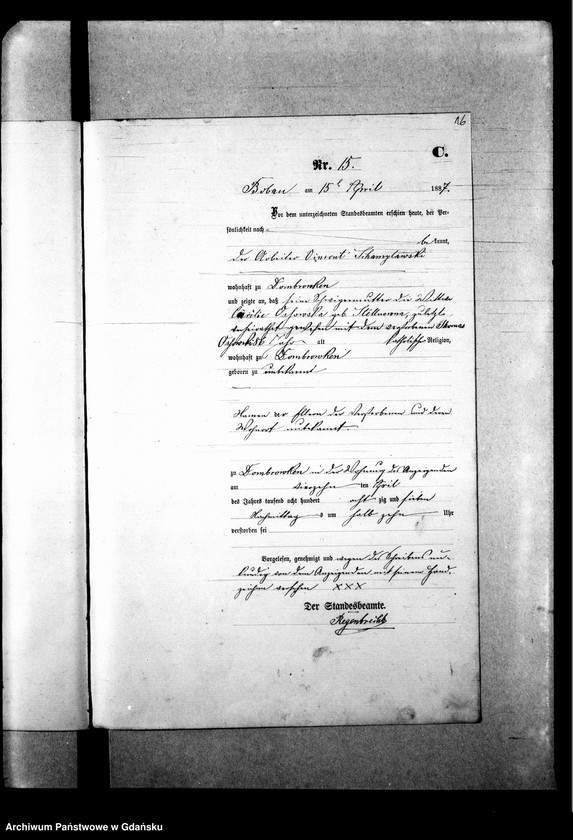 16
C.
Nr. 15.
Boban am 15t April 1887.
Vor dem unterzeichneten Standesbeamten erschien heute, der Per-
sönlichkeit nach
be kannt,
der Arbeiter Vincent
wohnhaft zu Dombrowken
und zeigte an, daß seine Schwiegermutter die Wittwe
Cäcilie Ossowska geb zuletzt
verheirathet gewesen mit dem verstorbenen Thomas
Ossowski 86 Jahr alt katholischer Religion,
wohnhaft zu Dombrowken
geboren zu unbekannt
Namen der Eltern der Verstorbenen und deren
Wohnort unbekannt
zu Dombrowken in der Wohnung des Anzeigenden
am vierzehn ten April
des Jahres tausend acht hundert acht zig und sieben
Nachmittag s um halb zehn Uhr
verstorben sei
Vorgelesen, genehmigt und wegen des Schreibens un-
kundig von dem Anzeigenden mit seinem Hand-
zeichen versehen XXX
Der Standesbeamte.
Regenbrecht
Archiwum Państwowe w Gdańsku